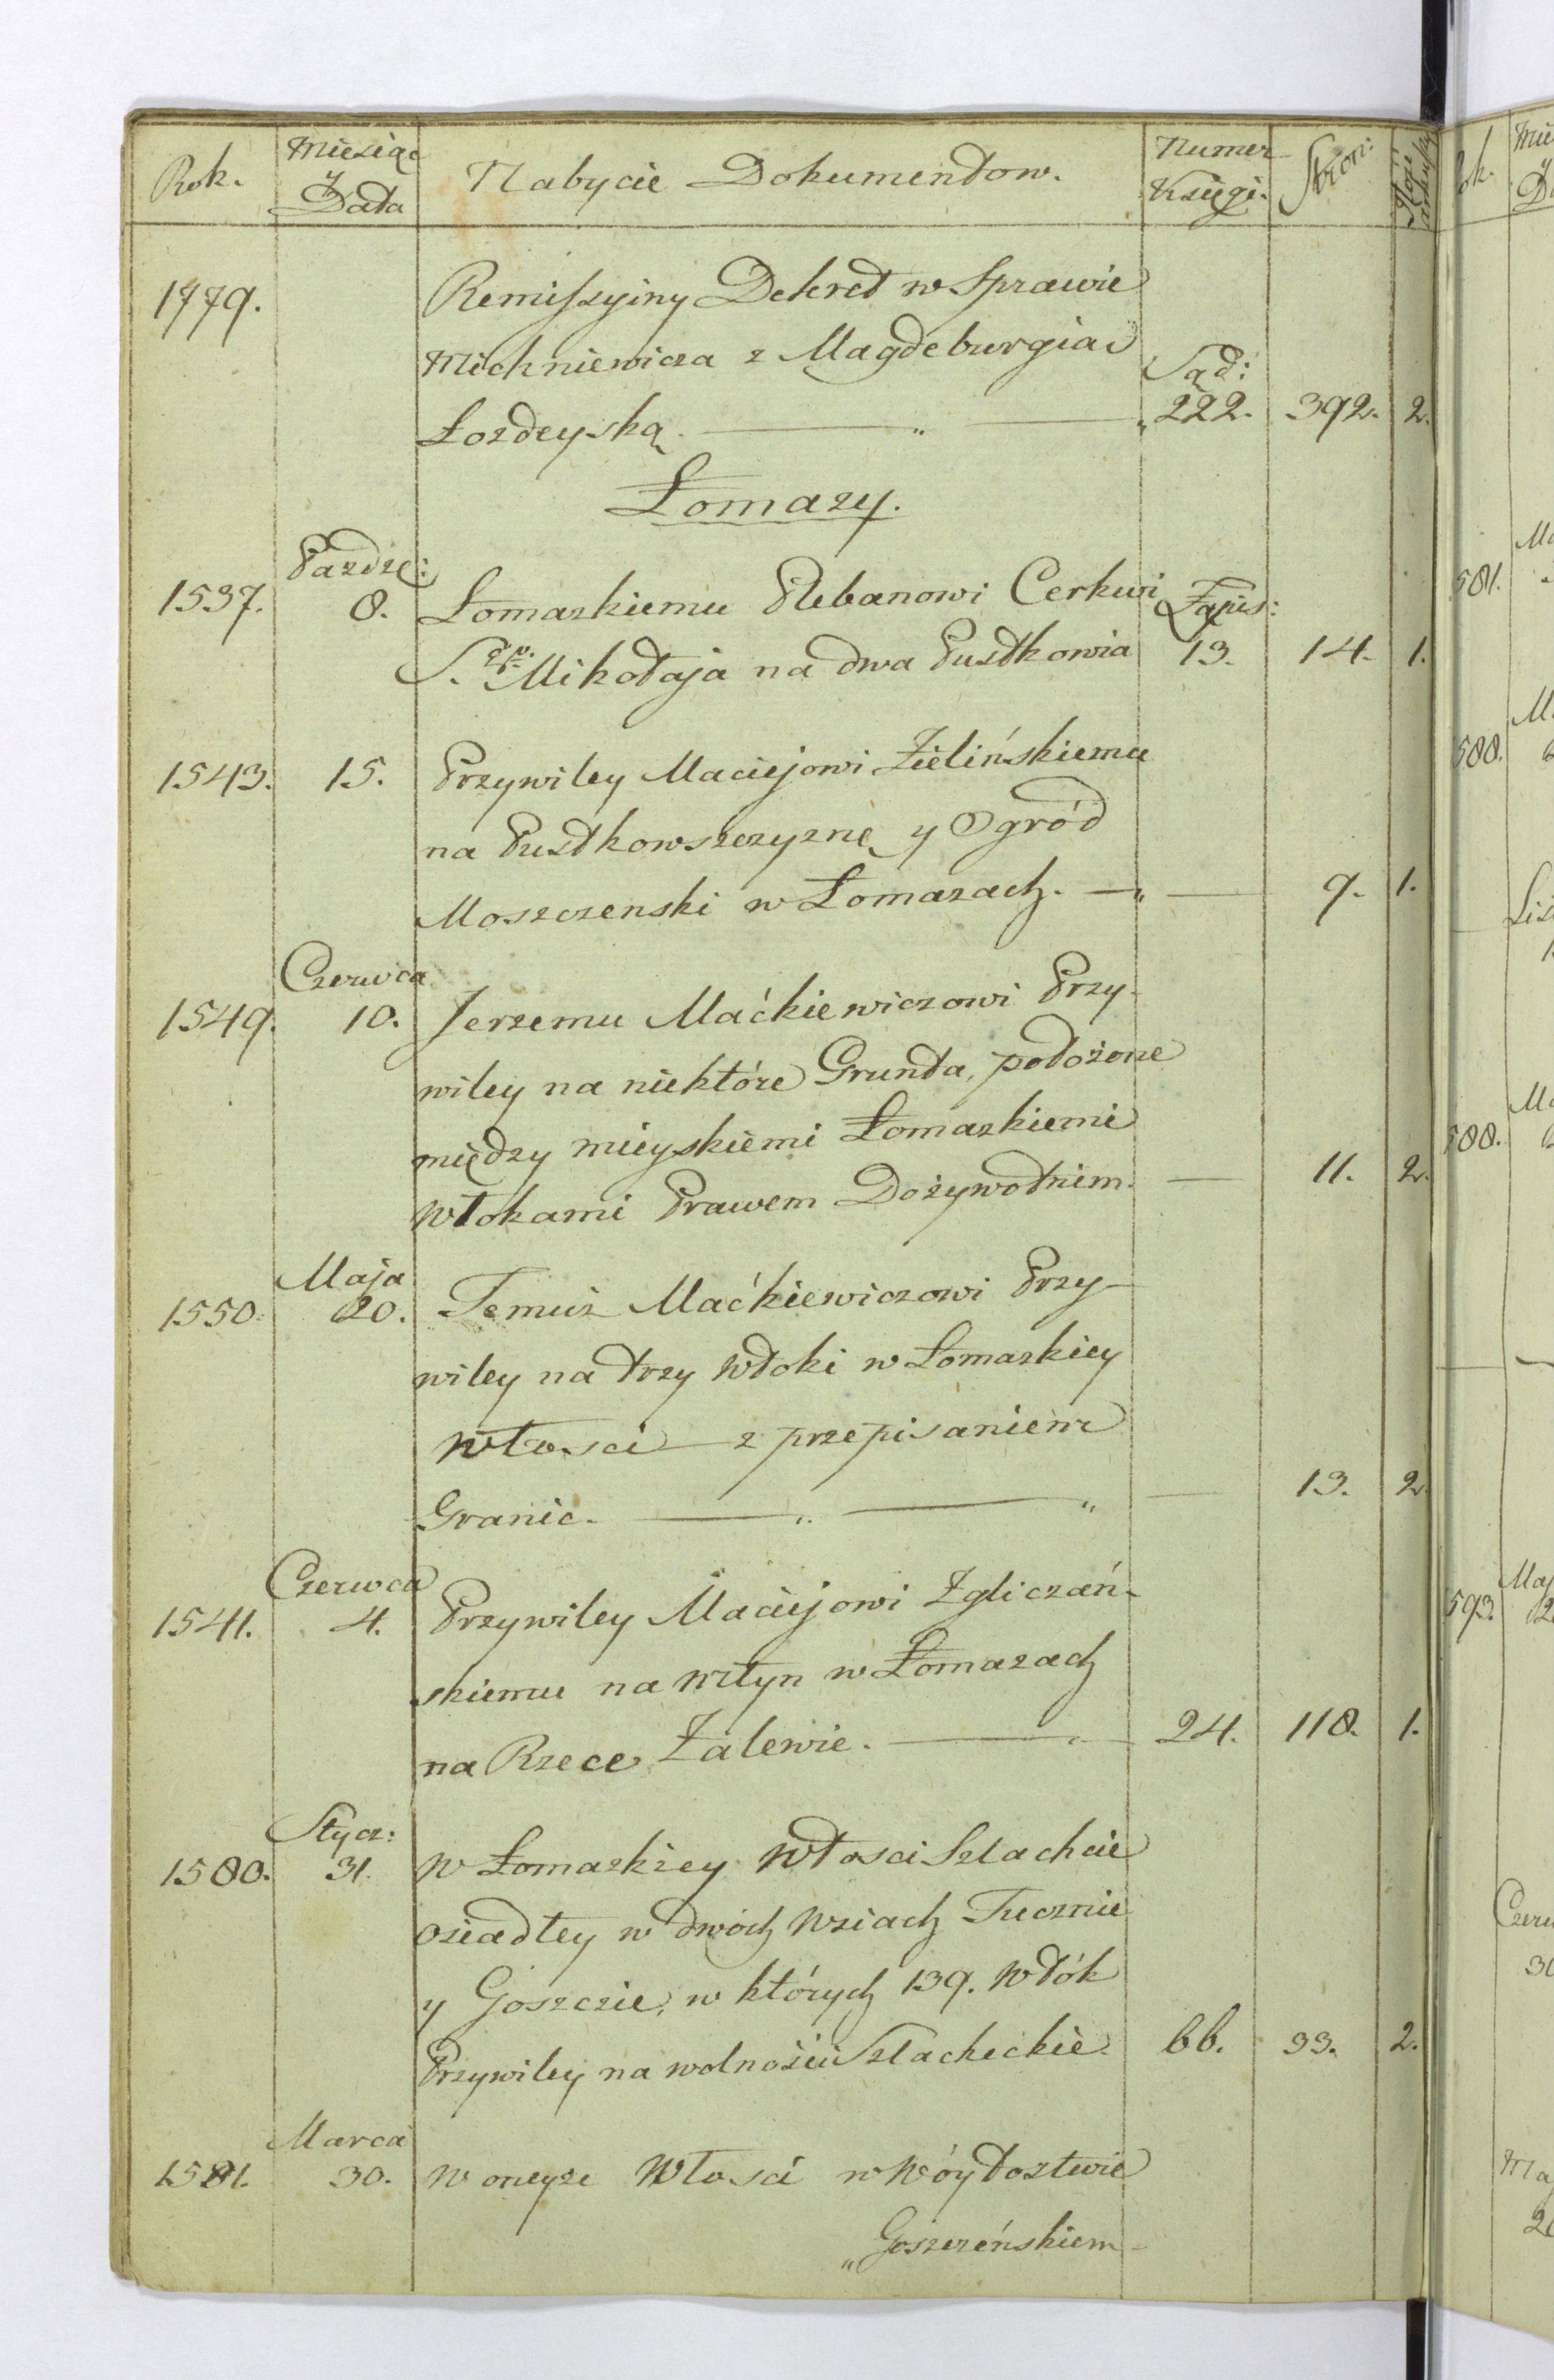 Rok. Miesiąc y Data Nabycie Dokumentow. Numer Księgi. Stron:
1779. Remiszyiny Dekret w Sprawie
Michniewicza z Magdeburgia
Łozdeyską. Sąd: 222. 392. 2.
Łomazy.
1537. Pazdze: 8. Łomazkiemu Plebanowi Cerkwi Zapis:
S. Mikołaja na dwa Pustkowia 13. 14. 1.
1543. 15. Przywiley Maciejowi Zielińskiemu
na Pustkowszczyznę y Ogród
Moszczenski w Łomazach. — 9. 1.
1549. Czerwca 10. Jerzemu Maćkiewiczowi Przy-
wiley na niektóre Grunta, położone
między mieyskiemi Łomazkiemi
Włokami Prawem Dożywotniem. — 11. 2.
1550. Maja 20. Temuż Maćkiewiczowi Przy-
wiley na trzy Włoki w Łomazkiey
Włosci z przepisaniem
Granic. — 13. 2.
1541. Czerwca 4. Przywiley Maciejowi Zgliczań-
skiemu na Młyn w Łomazach
na Rzece Zalewie. 24. 118. 1.
1580. Stycz: 31. W Łomazkiey Włosci Szlachcie
osiadłey w dwóch Wsiach Tucznie
y Goszczie, w których 139. Włók
Przywiley na wolności Szlacheckie. 66. 33. 2.
1581. Marca 30. W oneyże Włosci w Wóytostwie
Goszczeńskiem